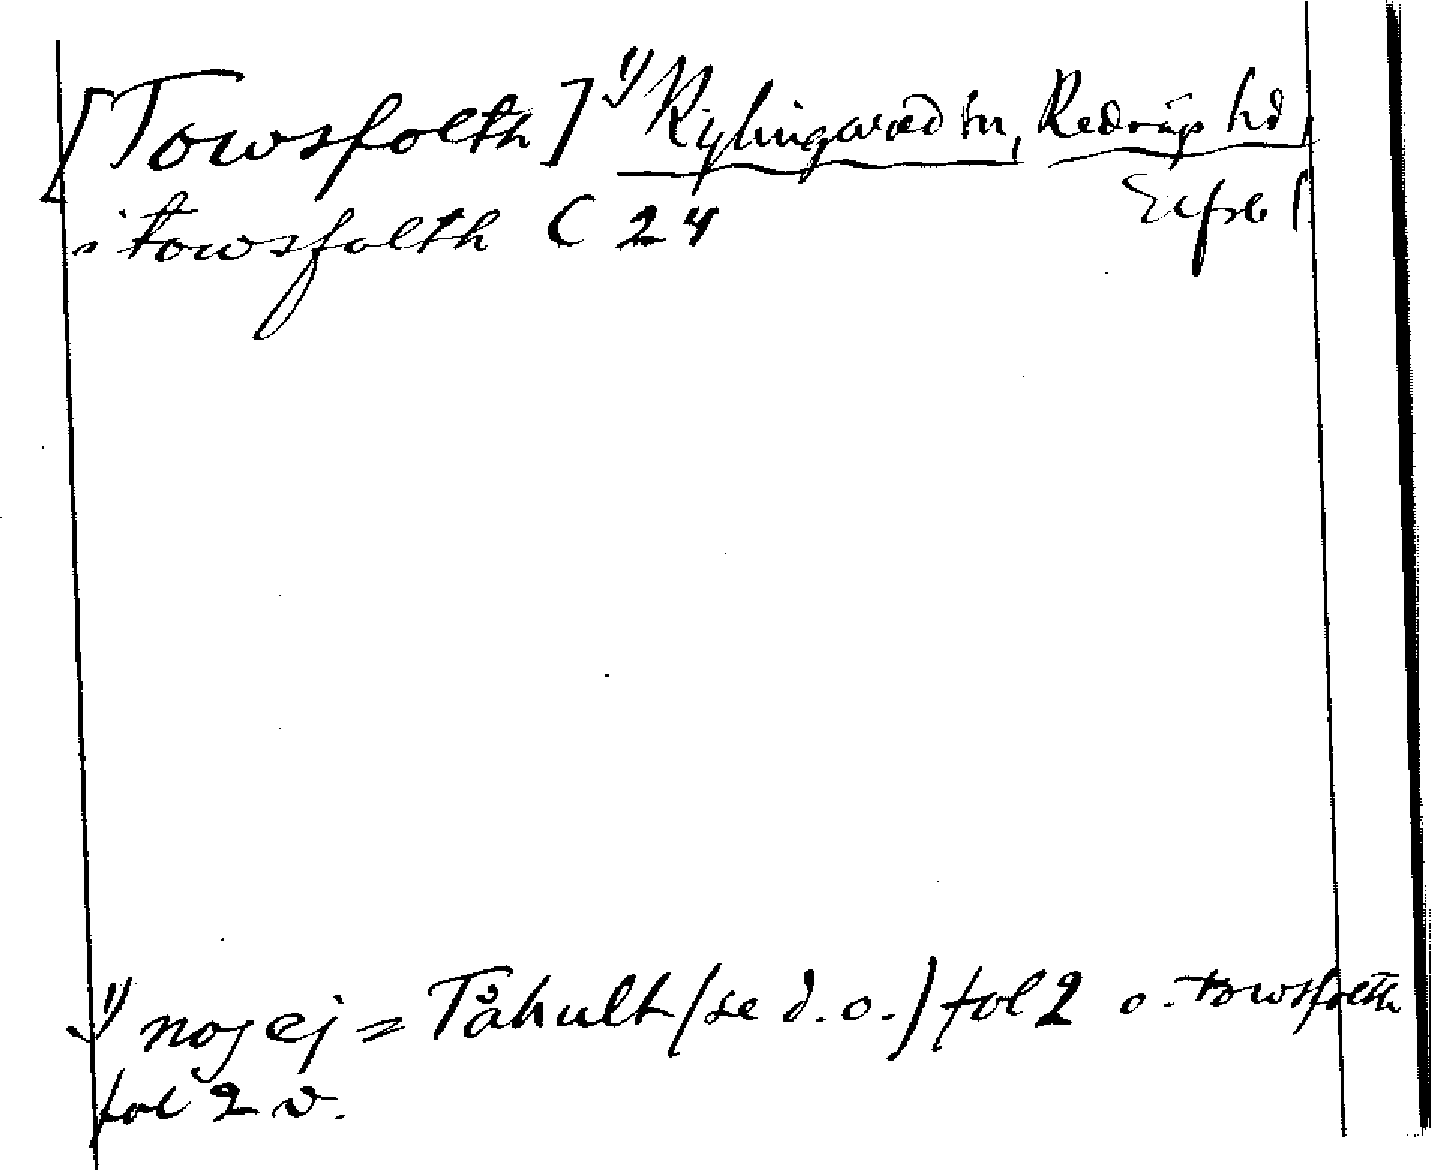 [Towsfolth] 1) Rylingaræd sn, Redvæp hd,
i towsfolth C 24
1) nog ej = Tåhult (se d. o.) fol 2 o. towsfolth
fol 2 v.